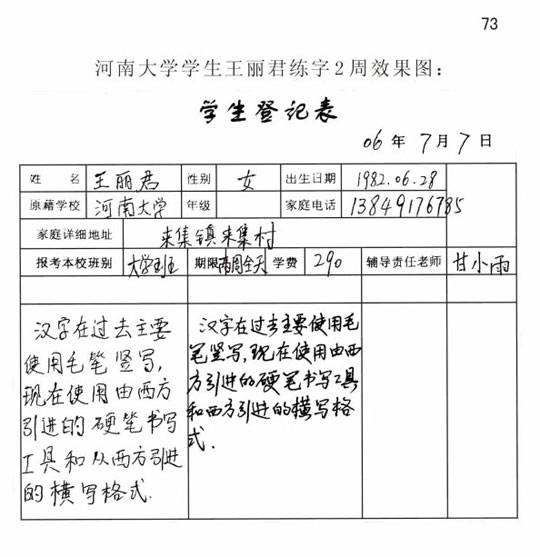 73
河南大学学生王丽君练字2周效果图：
学生登记表
06年7月7日
姓 名 王丽君 性别 女 出生日期 1982.06.28
原籍学校 河南大学 年级 家庭电话 13849176785
家庭详细地址 来集镇来集村
报考本校班别 大学班 期限 两周全天 学费 290 辅导责任老师 甘小雨
汉字在过去主要
使用毛笔竖写,
现在使用由西方
引进的硬笔书写
工具和从西方引进
的横写格式.
汉字在过去主要使用毛
笔竖写,现在使用由西
方引进的硬笔书写工具
和西方引进的横写格
式.